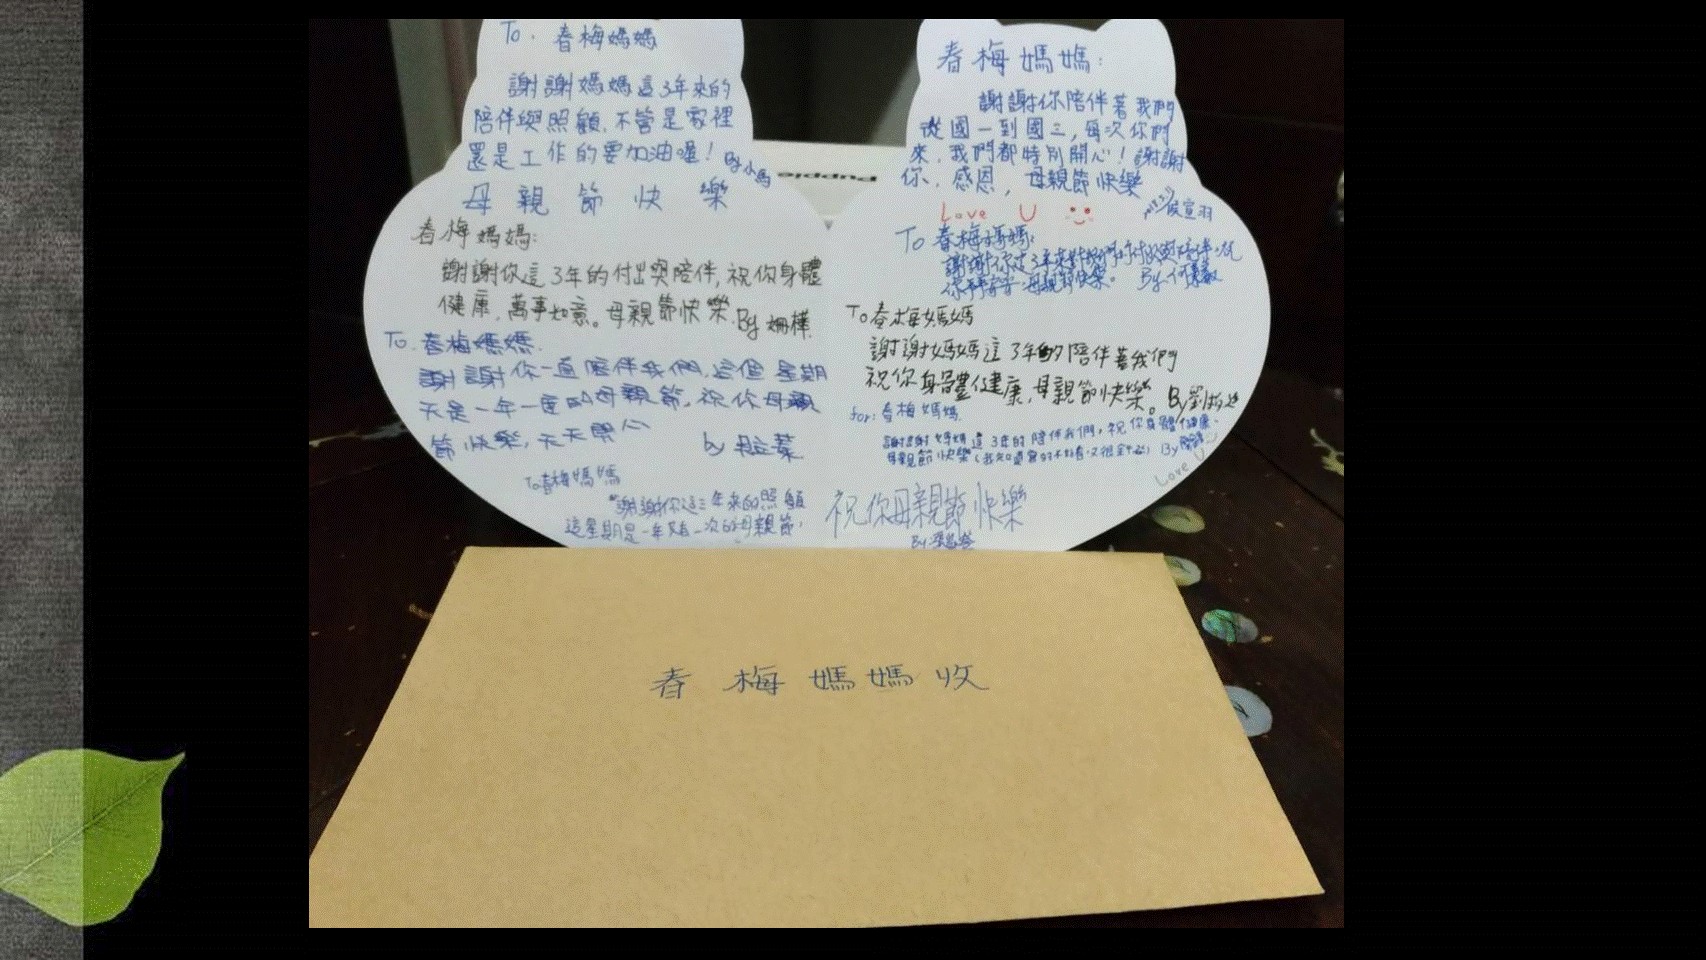 To. 春梅媽媽
謝謝媽媽這3年來的
陪伴與照顧,不管是家裡
還是工作的要加油喔! By 小馬
母親節快樂
春梅媽媽:
謝謝你這3年的付出與陪伴,祝你身體
健康,萬事如意。母親節快樂. By 姍樺
To. 春梅媽媽.
謝謝你一直陪伴我們,這個星期
天是一年一度的母親節,祝你母親
節快樂,天天開心
by
To春梅媽媽
謝謝你這三年來的照顧
這星期是一年只有一次的母親節,
春梅媽媽:
謝謝你陪伴著我們
從國一到國三,每次你們
來,我們都特別開心!謝謝
你,感恩,母親節快樂
Love U
宣羽
To 春梅媽媽:
謝謝你這3年來對我們的付出與陪伴,祝
你平平安安,母親節快樂。 By.
To春梅媽媽
謝謝媽媽這3年的陪伴著我們
祝你身體健康,母親節快樂。By劉
for: 春梅媽媽.
謝謝媽媽這3年的陪伴我們,祝你身體健康,
母親節快樂 By
Love U
祝你母親節快樂
By.
春梅媽媽收